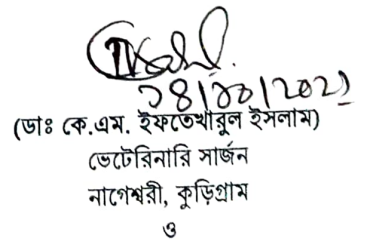 (ডাঃ কে.এম. ইফতেখারুল ইসলাম)
ভেটেরিনারি সার্জন
নাগেশ্বরী, কুড়িগ্রাম
ও